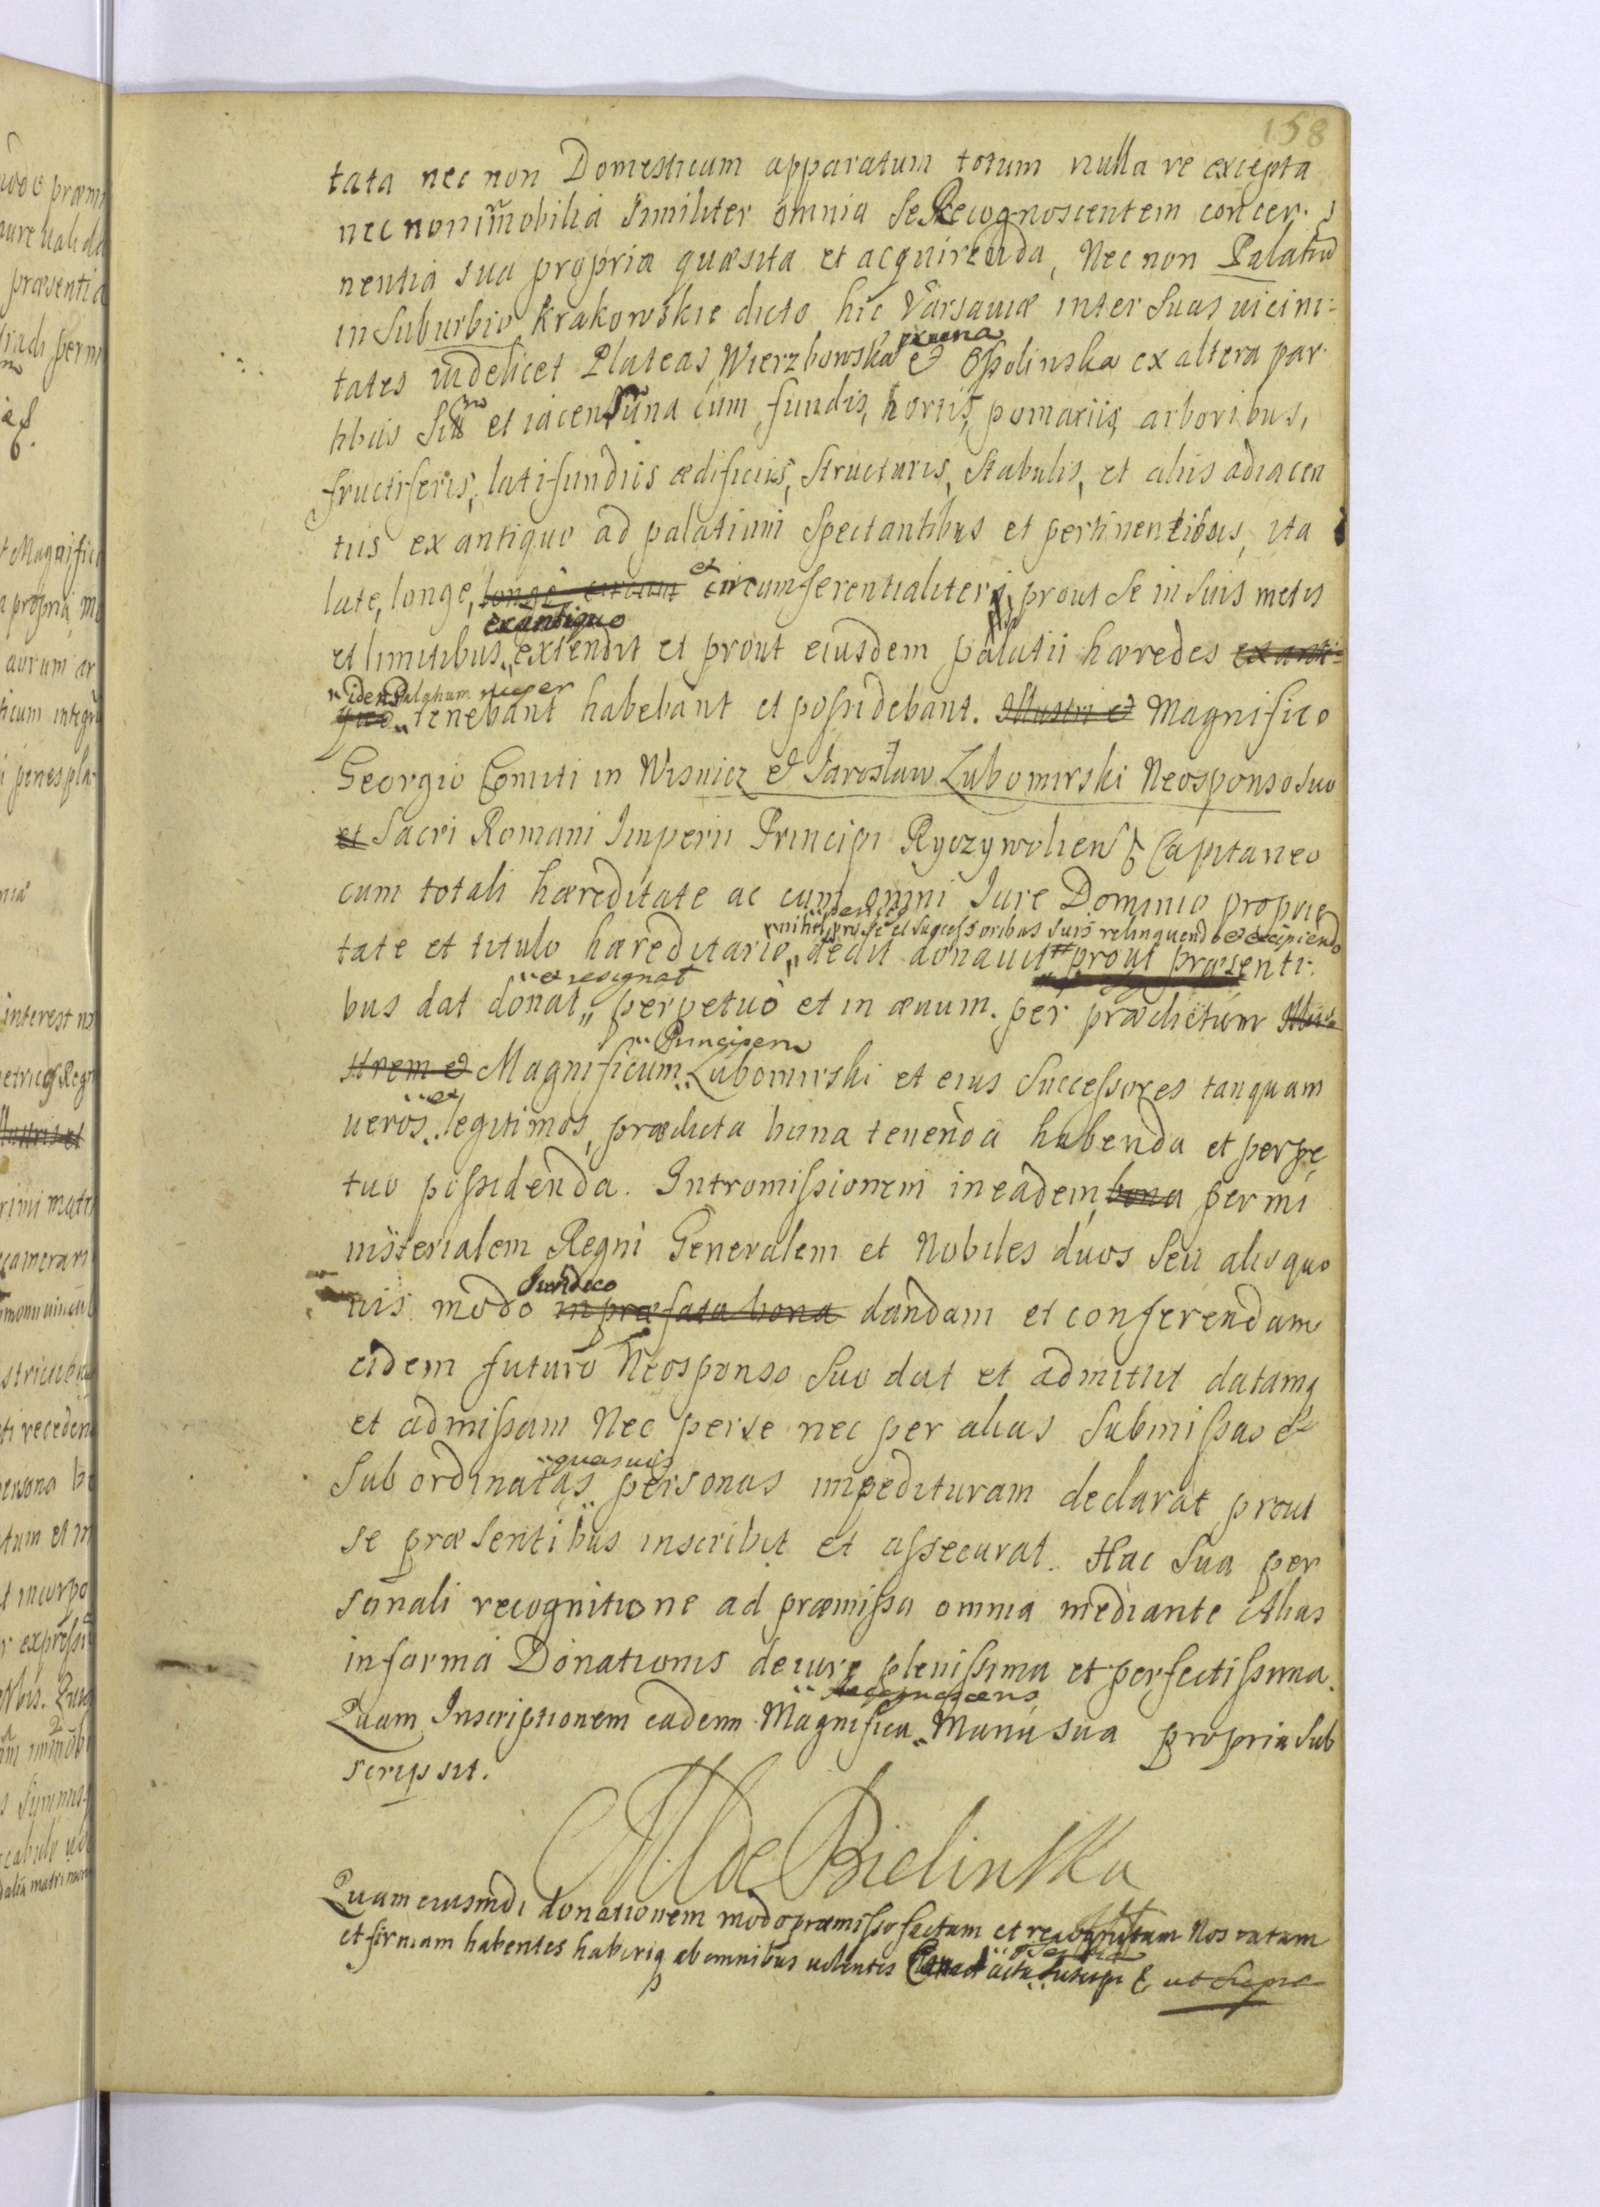 158
tata nec non Domesticum apparatum totum nulla re excepta
nec non im̃obilia similiter omnia se Recognoscentem concer-
nentia sua propria quæsita et acquirenda, Nec non Palatiũ
in suburbio Krakowskie dicto hic Varsaviæ inter suas vicini-
ex una
tates videlicet Plateas, Wierzbowska et Opolinska ex altera par-
tibus sitũ et iacens una cum fundis, hortis, pomariis, arboribus,
fructiferis, latifundiis ædificiis, structuris, stabulis, et aliis adiacen
tiis ex antiquo ad palatium spectantibus et pertinentibus, ita
et
late, longe, longe circum circumferentialiter, prout se in suis metis
ex antiquo
et limitibus extendit et prout eiusdem palatii hæredes ex anti-
idem Palatium nuper
quo tenebant habebant et possidebant. Illustri et Magnifico
Georgio Comiti in Wisnicz et Jarosław Lubomirski Neosponso suo
et Sacri Romani Imperii Principi Ryczywoliens Capitaneo
cum totali hæreditate ac cum omni Jure Dominio proprie
nihil pro se et successoribus suis relinquendo et excipiendo
tate et titulo hæreditario, dedit donavit prout præsenti-
et resignat
bus dat donat perpetuo et in ævum. per prædictum Illus-
Principem
trem et Magnificum Lubomirski et eius successores tanquam
et
veros legitimos, prædicta bona tenenda habenda et perpe
tuo possidenda. Intromissionem in eadem bona per mi
nisterialem Regni Generalem et Nobiles duos seu alio quo
Juridico
vis modo in præfata bona dandam et conferendam
eidem futuro Neosponso suo dat et admittit datamq
et admissam Nec per se nec per alias submissas et
quasvis
subordinatas personas impedituram declarat prout
se præsentibus inscribit et assecurat. Hac sua per
sonali recognitione ad præmissa omnia mediante Alias
in forma Donationis de iure plenissima et perfectissima.
Recognoscens
Quam Inscriptionem eadem Magnifica Manu sua propria sub
scripsit.
M de Bielinska
Quam eiusmodi donationem modo præmisso factam et recognitam Nos ratam
et firmam habentes haberiq ab omnibus volentes ad acta suscepi ut supra